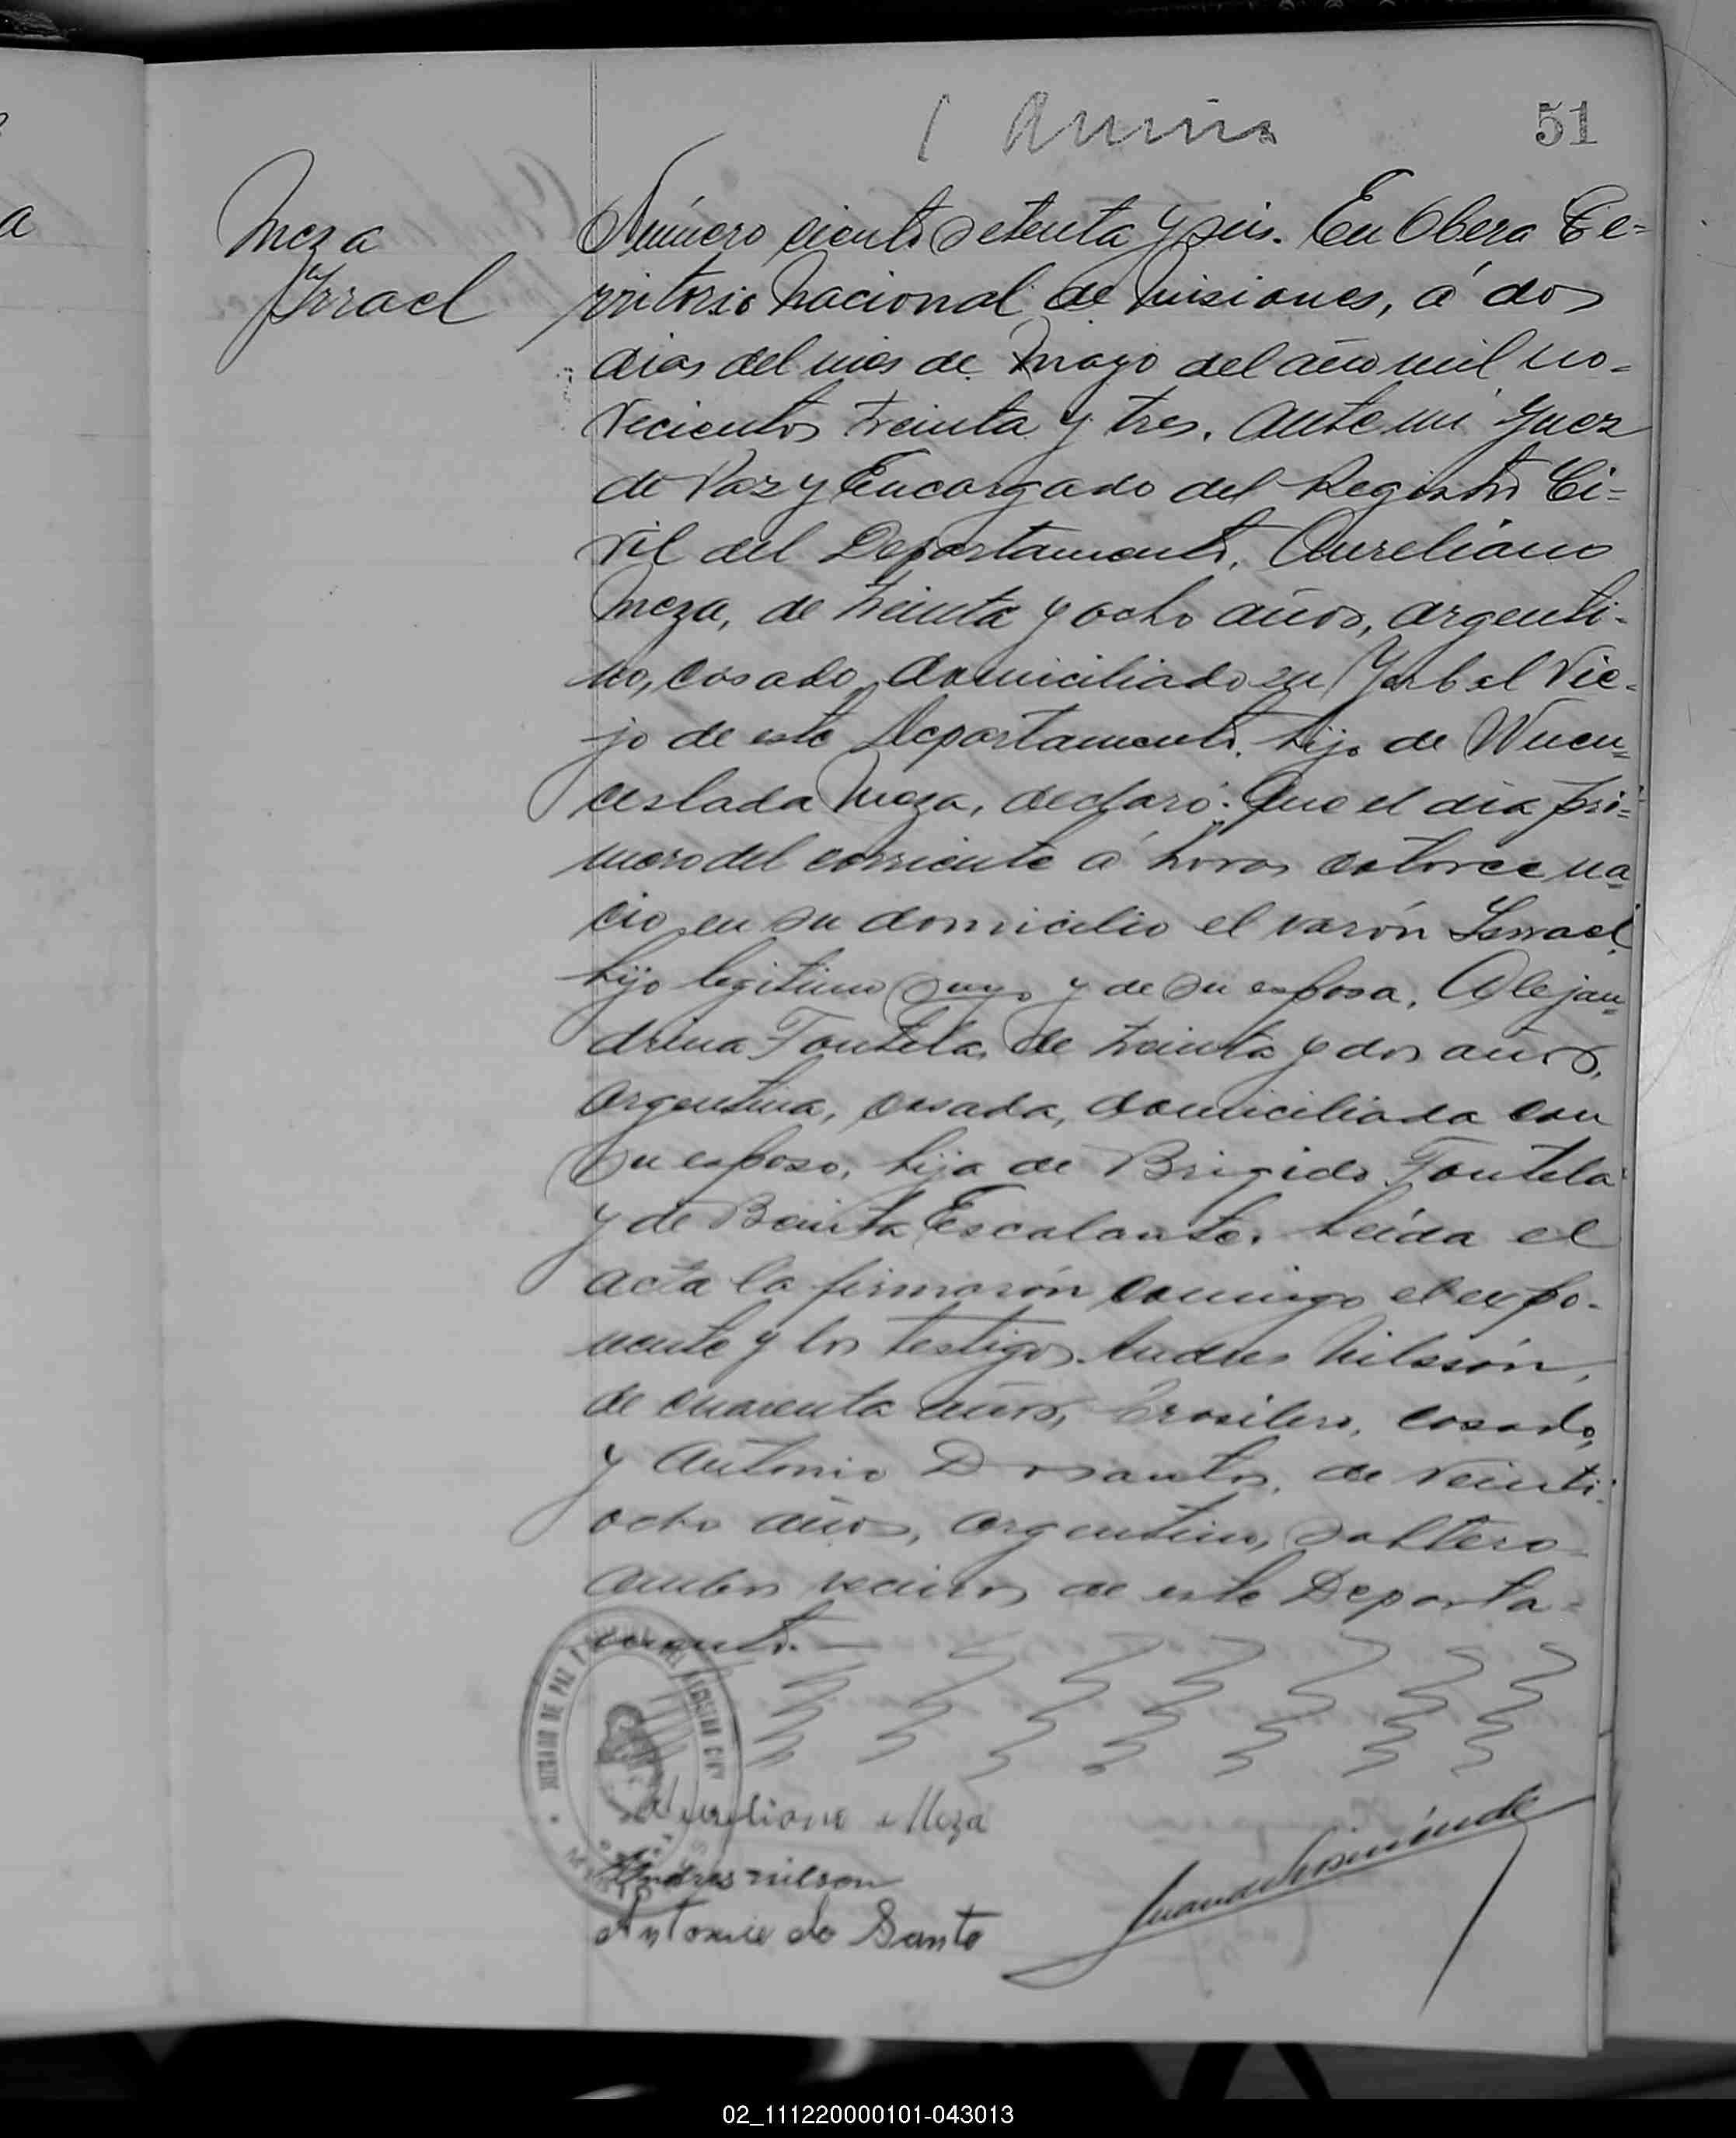 51
Meza
Irrael
Número ciento Setenta y seis. En Obera Te-
rritorio Nacional de Misiones, á dos
dias del mes de Mayo del año mil no-
vecientos treinta y tres. Ante mi Juez
de Paz y Encargado del Registro Ci-
vil del Departamento, Aureliano
Meza, de treinta y ocho años, argenti-
no, casado, domiciliado en Yerbal Vie-
jo de este Departamento, hijo de Wuen-
ceslada Meza, declaró: Que el dia pri-
mero del corriente á horas catorce na-
cio en su domicilio el varón
hijo legitimo suyo y de su esposa, Alejan-
drina Fontela, de treinta y dos años,
argentina, casada, domiciliada con
su esposo, hija de Brigido Fontela
y de Benita Escalante. Leida el
acta la firmarón conmigo el expo-
nente y los testigos Andres Nilssón,
de cuarenta años, brasilero, casado,
y Antonio Dosantos, de veinti-
ocho años, argentino, soltero
ambos vecinos de este Departa-
mento.
JUZGADO DE PAZ REGISTRO CIVIL
Aureliano Meza
Andres nilson
Antonio do Santo
02_111220000101-043013